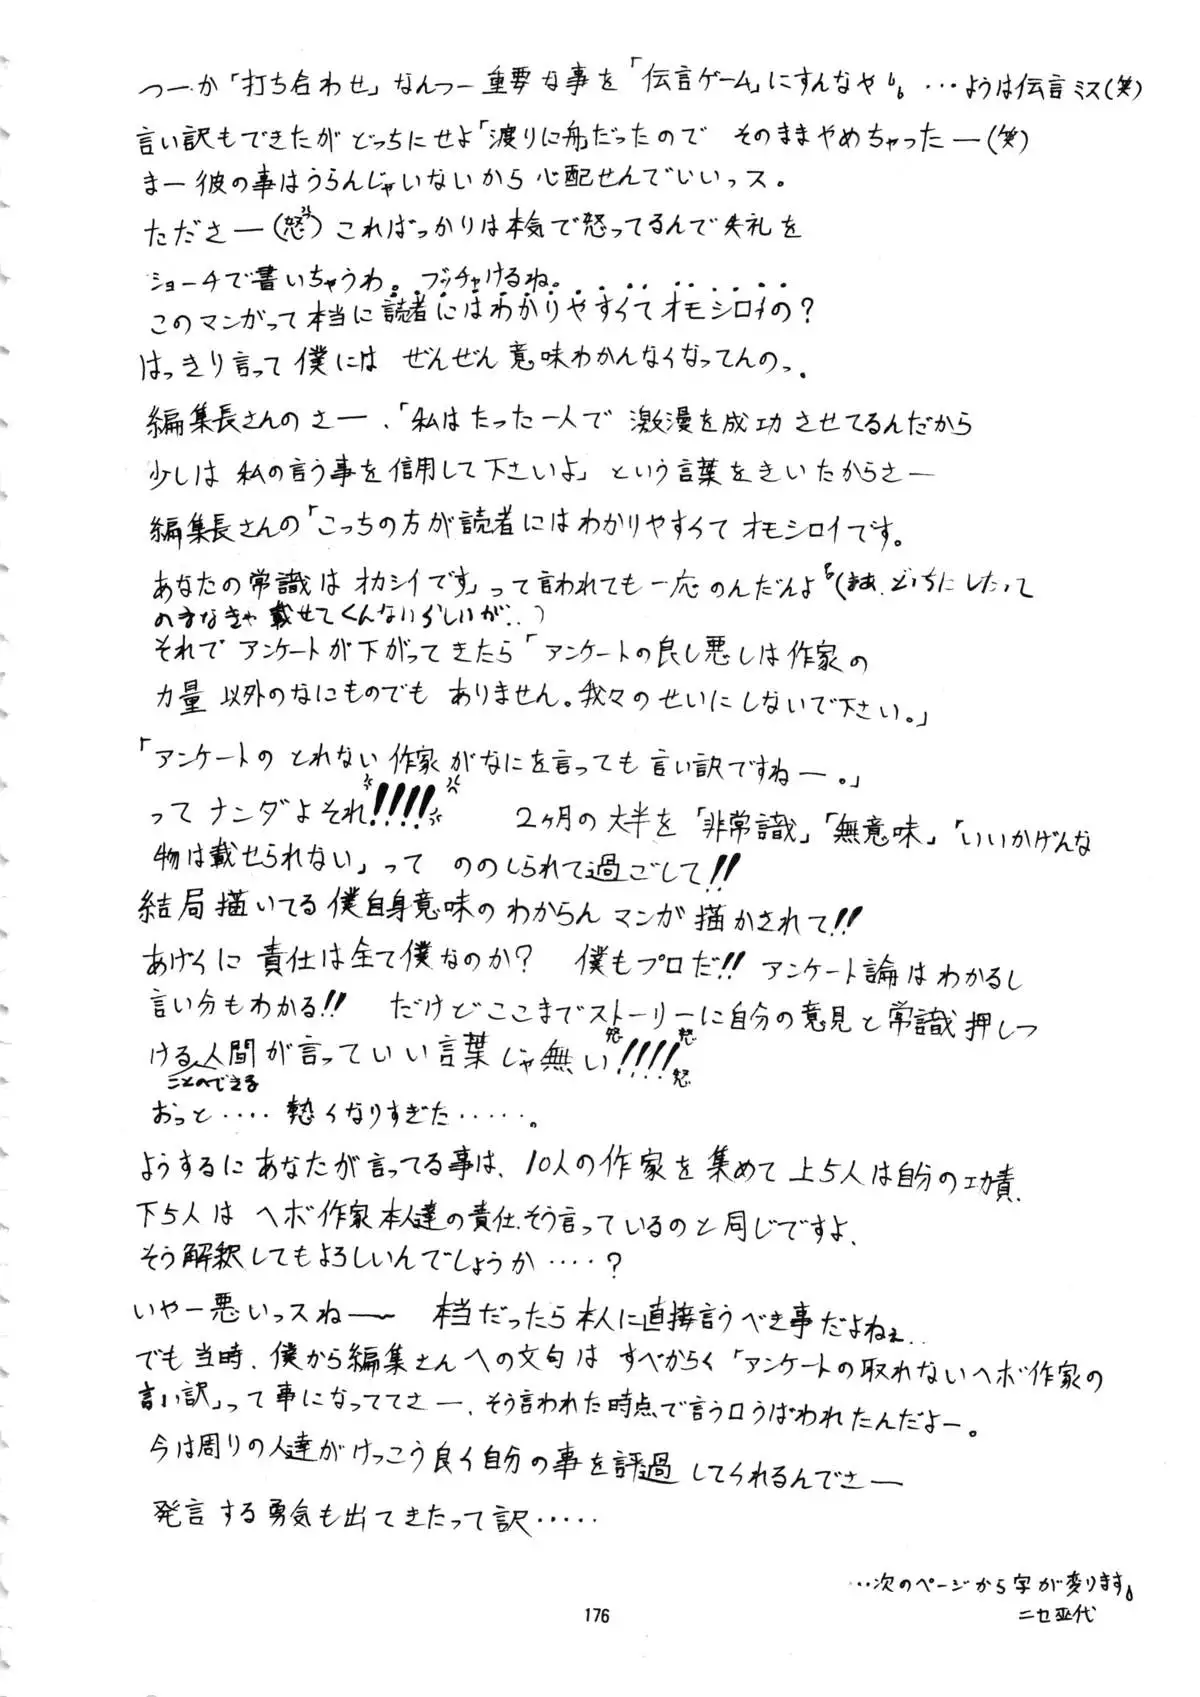 つーか「打ち合わせ」なんつー重要な事を「伝言ゲーム」にすんなや。…ようは伝言ミス(笑)
言い訳もできたがどっちにせよ「渡りに船」だったので そのままやめちゃったー(笑)
まー彼の事はうらんじゃいないから心配せんでいいっス。
たださー(怒)こればっかりは本気で怒ってるんで失礼を
ショーチで書いちゃうわ。ブッチャけるね。
このマンガって本当に読者にはわかりやすくてオモシロイの?
はっきり言って僕には ぜんぜん意味わかんなくなってんのっ.
編集長さんのさー、「私はたった一人で 激漫を成功させてるんだから
少しは 私の言う事を信用して下さいよ」という言葉をきいたからさー
編集長さんの「こっちの方が読者にはわかりやすくてオモシロイです。
あなたの常識はオカシイです」って言われても一応のんだんよ(まぁ、どっちにしたって
のまなきゃ載せてくんないらしいが..)
それでアンケートが下がってきたら「アンケートの良し悪しは作家の
力量以外のなにものでもありません。我々のせいにしないで下さい。」
「アンケートのとれない作家がなにを言っても言い訳ですねー。」
ってナンダよそれ!!!! 2ヶ月の大半を「非常識」「無意味」「いいかげんな
物は載せられない」って ののしられて過ごして!!
結局描いてる僕自身意味のわからんマンガ描かされて!!
あげくに責任は全て僕なのか? 僕もプロだ!! アンケート論はわかるし
言い分もわかる!! だけどここまでストーリーに自分の意見と常識押しつ
ける人間が言っていい言葉じゃ無い!!!! 怒 怒 怒
ことのできる
おっと‥‥熱くなりすぎた‥‥‥。
ようするにあなたが言ってる事は、10人の作家を集めて上5人は自分の功責、
下5人は ヘボ作家本人達の責任、そう言っているのと同じですよ、
そう解釈してもよろしいんでしょうか‥‥?
いやー悪いっスね〜 本当だったら本人に直接言うべき事だよねぇ..
でも当時、僕から編集さんへの文句は すべからく「アンケートの取れないヘボ作家の
言い訳」って事になっててさー、そう言われた時点で言う口うばわれたんだよー。
今は周りの人達がけっこう良く自分の事を評過してくれるんでさー
発言する勇気も出てきたって訳‥‥‥
…次のページから字が変ります。
ニセ巫代
176